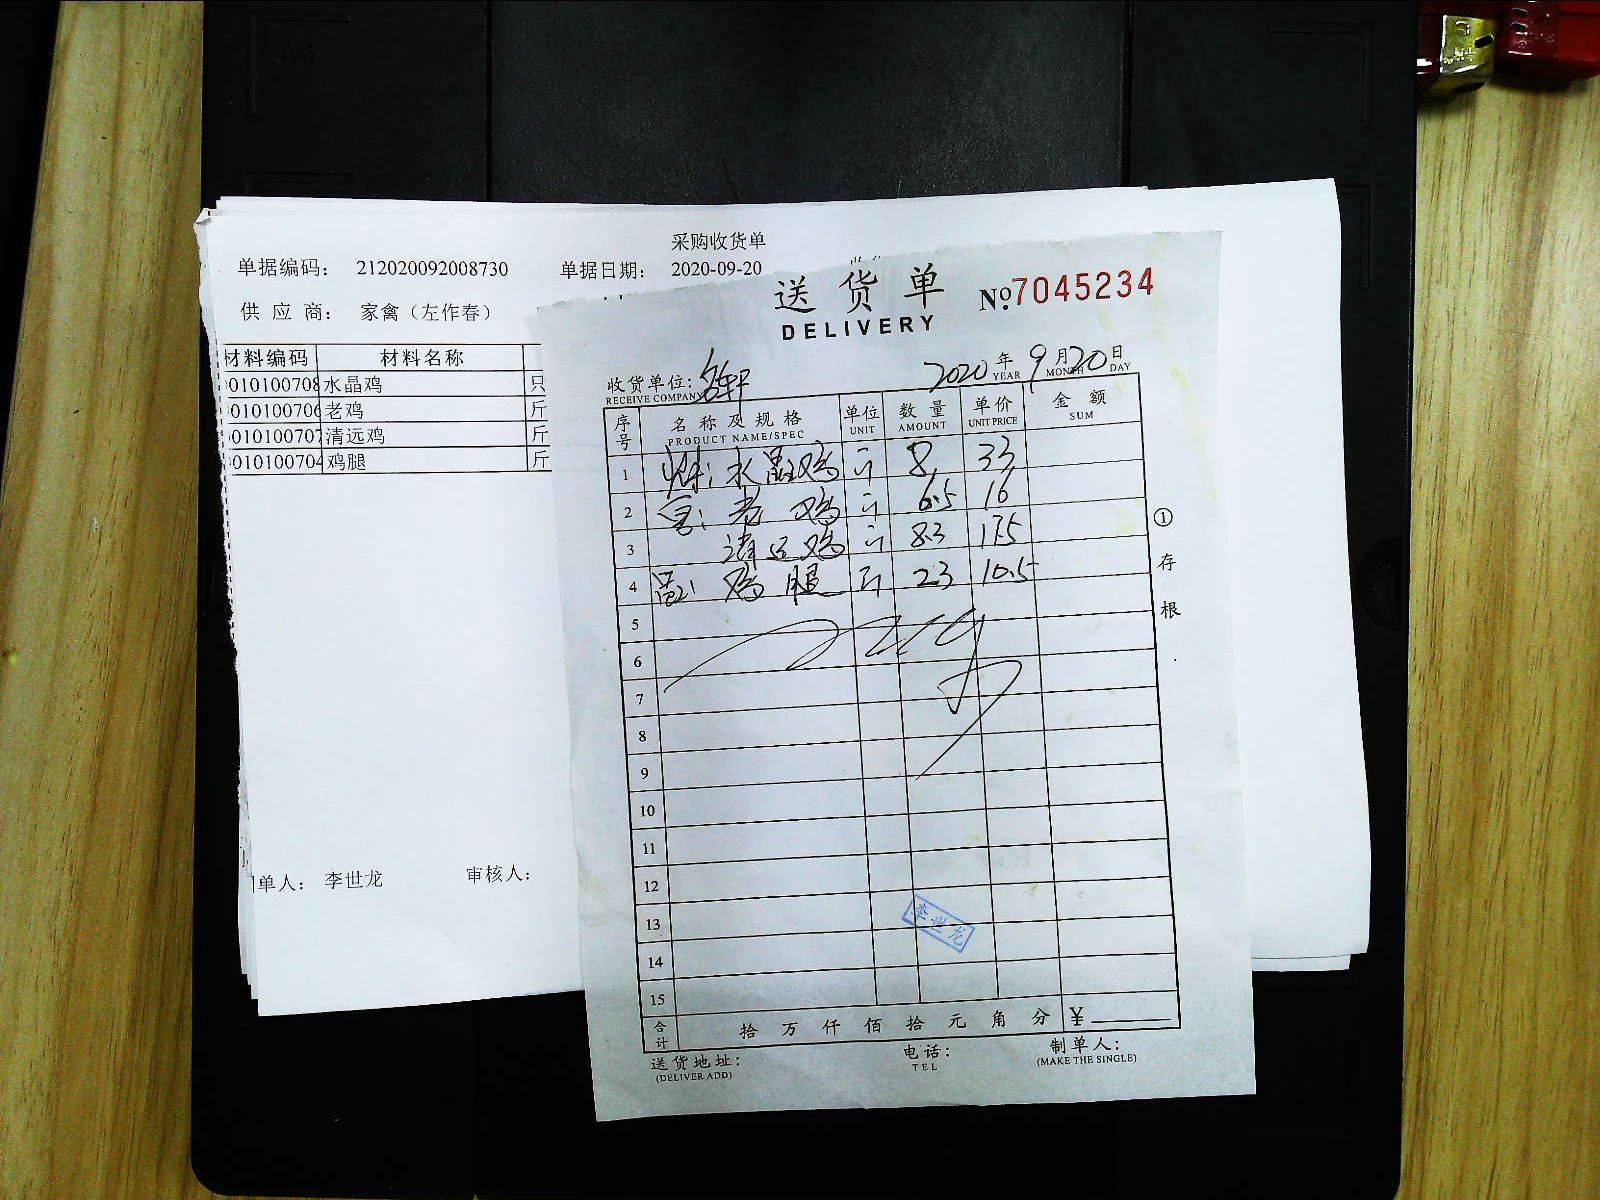 采购收货单
单据编码： 212020092008730 单据日期： 2020-09-20
供 应 商： 家禽（左作春）
材料编码 材料名称
010100708 水晶鸡 只
010100706 老鸡 斤
010100707 清远鸡 斤
010100704 鸡腿 斤
单人： 李世龙 审核人：
送 货 单 №7045234
DELIVERY
收货单位: 2020 年 9 月 20 日
RECEIVE COMPANY YEAR MONTH DAY
序号 名 称 及 规 格 单位 数 量 单价 金 额
PRODUCT NAME/SPEC UNIT AMOUNT UNIT PRICE SUM
1 水晶鸡 8 33
2 老 鸡 6.5 16
3 清远鸡 8.3 17.5
4 鸡 腿 斤 23 10.5
5
6
7
8
9
10
11
12
13
14
15
李世龙
合计 拾 万 仟 佰 拾 元 角 分 ¥
送货地址: 电话: 制单人:
(DELIVER ADD) TEL (MAKE THE SINGLE)
① 存 根